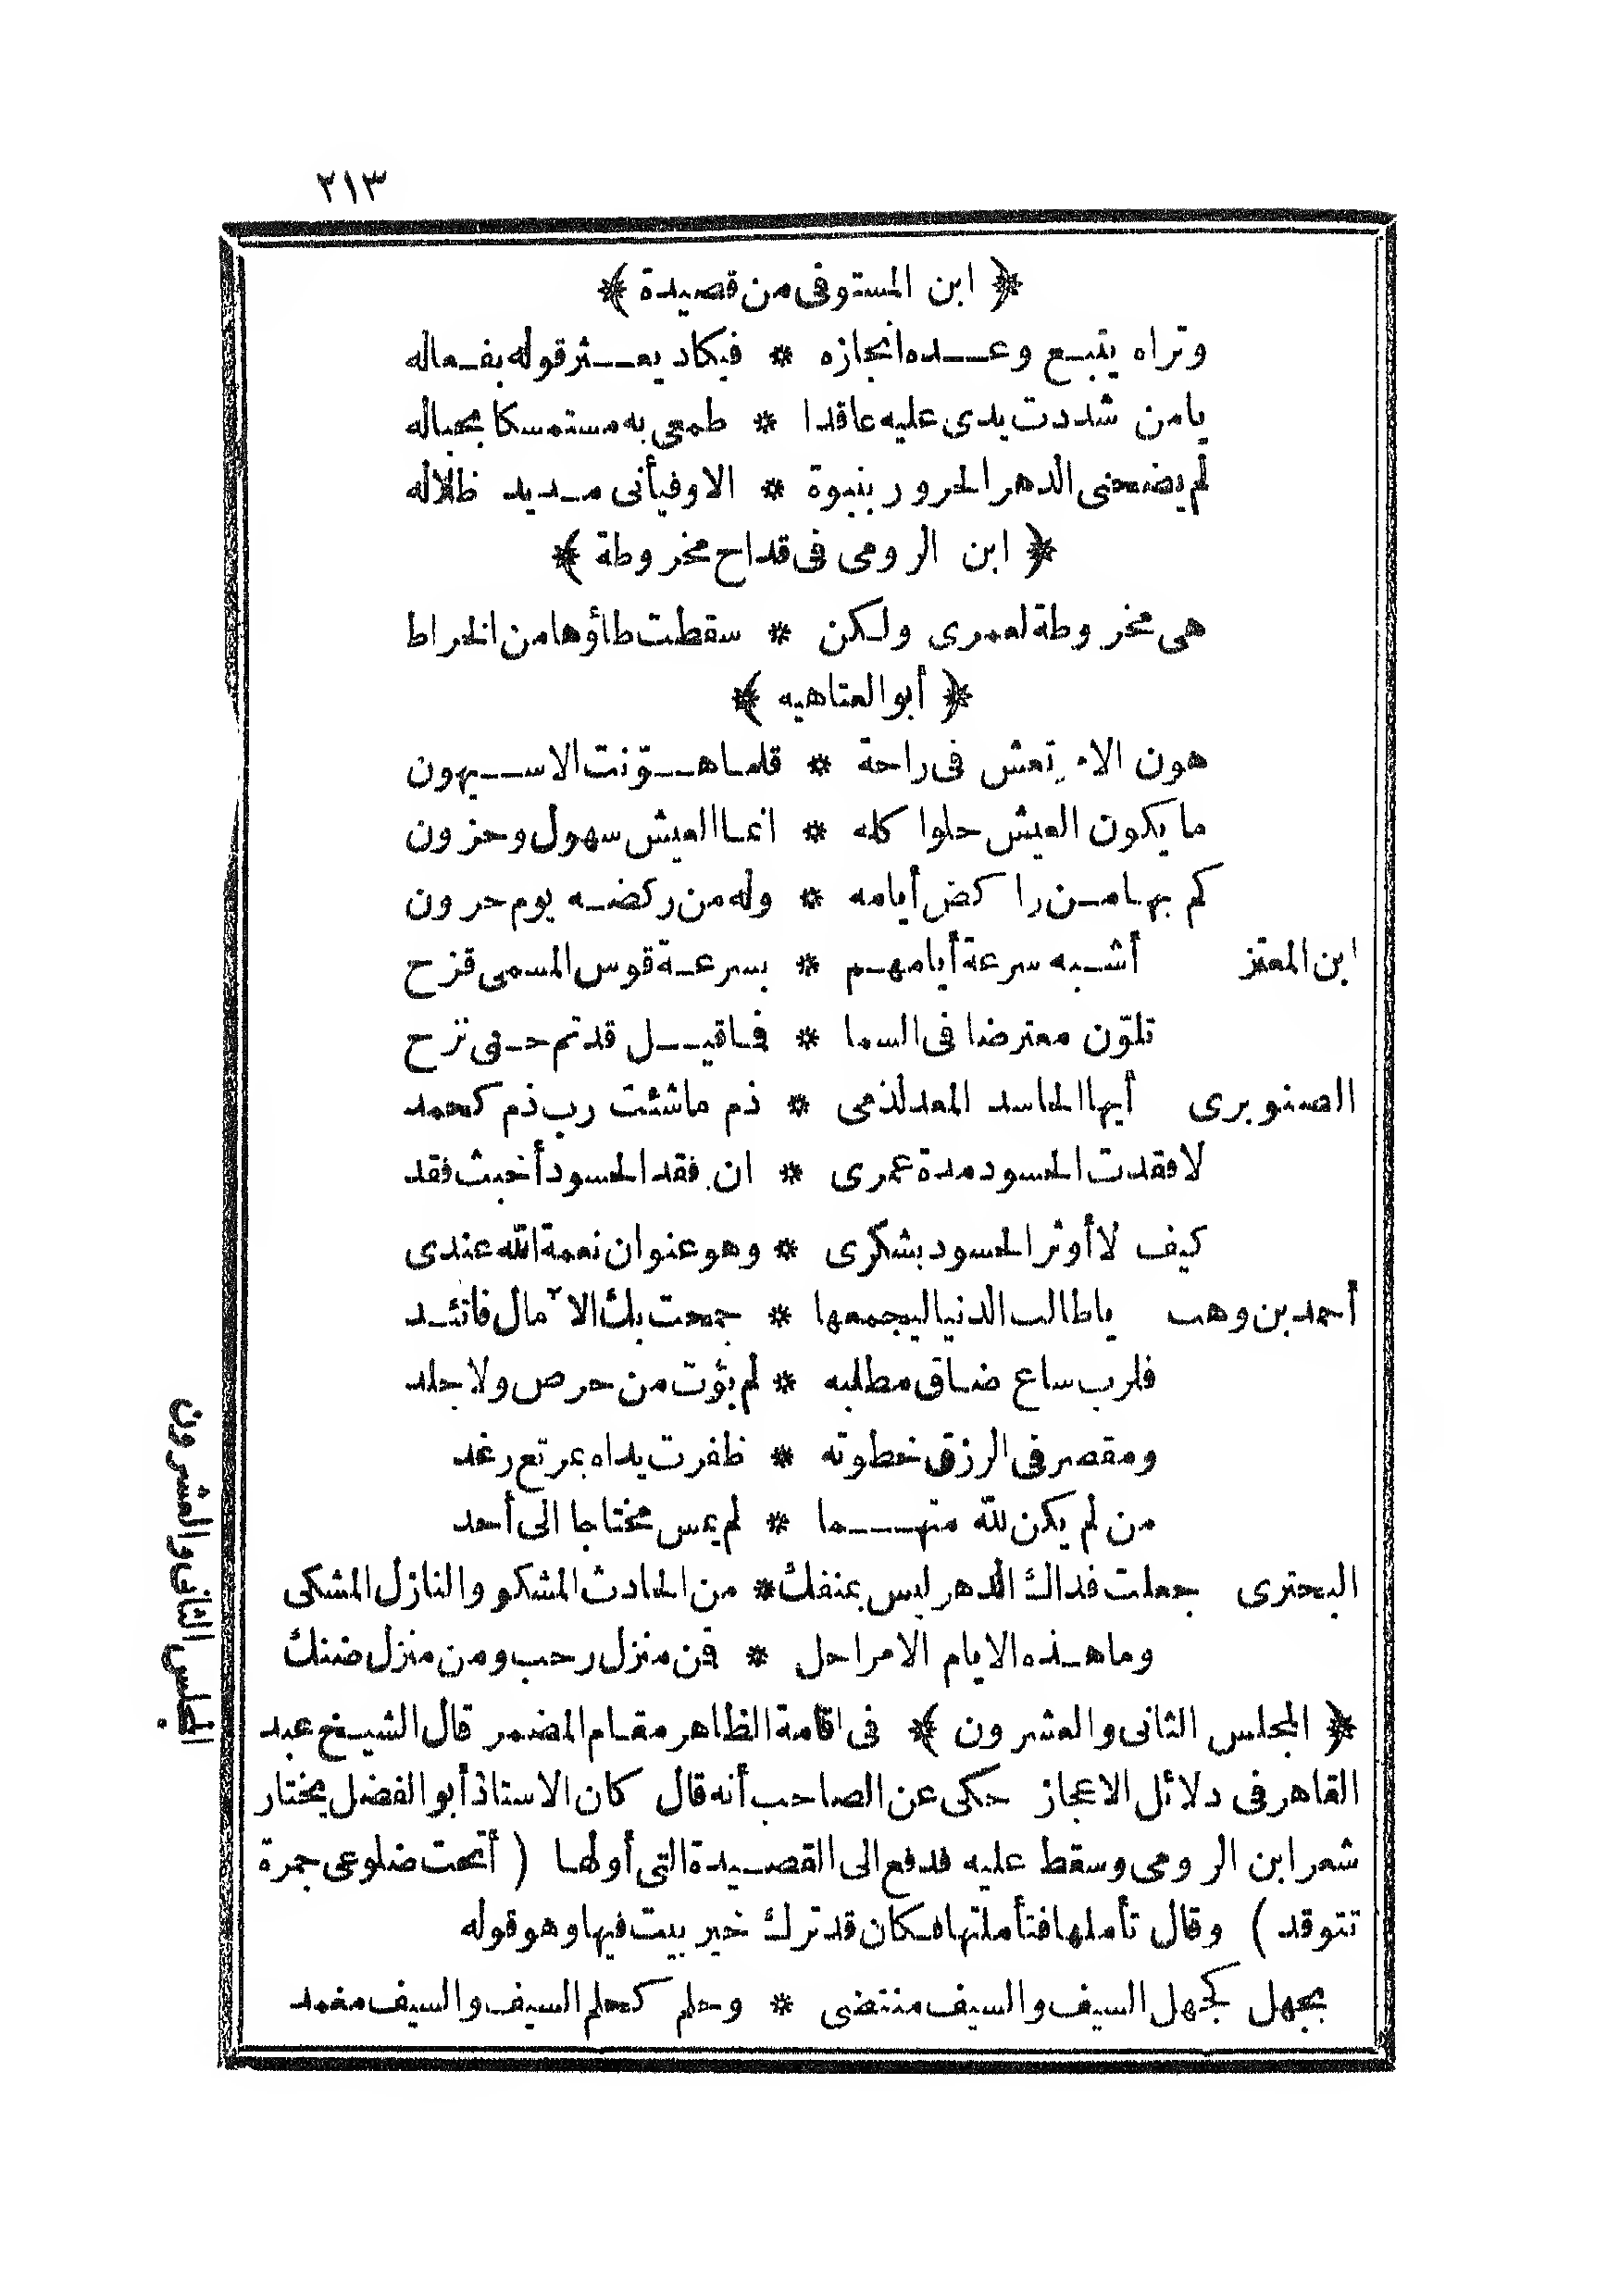 ٢١٣
﴿ ابن المستوفى من قصيدة ﴾
وتراه يتبع وعده انجازه * فيكاد يعثر قوله بفعاله
يا من شددت يدى عليه عاقدا * طمعى به مستمسكا بحباله
لم يضحنى الدهر الحرور بنبوة * الا وفيأنى مديد ظلاله
﴿ ابن الرومى فى قداح مخروطة ﴾
هى مخروطة لعمرى ولكن * سقطت طاؤها من الخراط
﴿ أبو العتاهيه ﴾
هون الام تعش فى راحة * قلما هوّنت الا سيهون
ما يكون العيش حلوا كله * انما العيش سهول وحزون
كم بها من راكض أيامه * وله من ركضه يوم حرون
ابن المعتز أشبه سرعة أيامهم * بسرعة قوس المسمى قزح
تلوّن معترضا فى السما * فما قيل قد تم حتى نزح
الصنوبرى أيها الحاسد المعد لذمى * ذم ما شئت رب ذم كحمد
لا فقدت الحسود مدة عمرى * ان فقد الحسود أخبث فقد
كيف لا أوثر الحسود بشكرى * وهو عنوان نعمة الله عندى
أحمد بن وهب يا طالب الدنيا ليجمعها * جمحت بك الآمال فاتئد
فلرب ساع ضاق مطلبه * لم يؤت من حرص ولا جلد
ومقصر فى الرزق خطوته * ظفرت يداه بمرتع رغد
من لم يكن لله متهما * لم يمس محتاجا الى أحد
البحترى جعلت فداك الدهر ليس بمنفك * من الحادث المشكو والنازل المشكى
وما هذه الايام الا مراحل * فمن منزل رحب ومن منزل ضنك
﴿ المجلس الثانى والعشرون ﴾ فى اقامة الظاهر مقام المضمر قال الشيخ عبد
القاهر فى دلائل الاعجاز حكى عن الصاحب أنه قال كان الاستاذ أبو الفضل يختار
شعر ابن الرومى وسقط عليه فدفع الى القصيدة التى أولها ( أتحت ضلوعى جمرة
تتوقد ) وقال تأملها فتأملتها فكان قد ترك خير بيت فيها وهو قوله
بجهل كجهل السيف والسيف منتضى * وحلم كحلم السيف والسيف مغمد
المجلس الثانى والعشرون